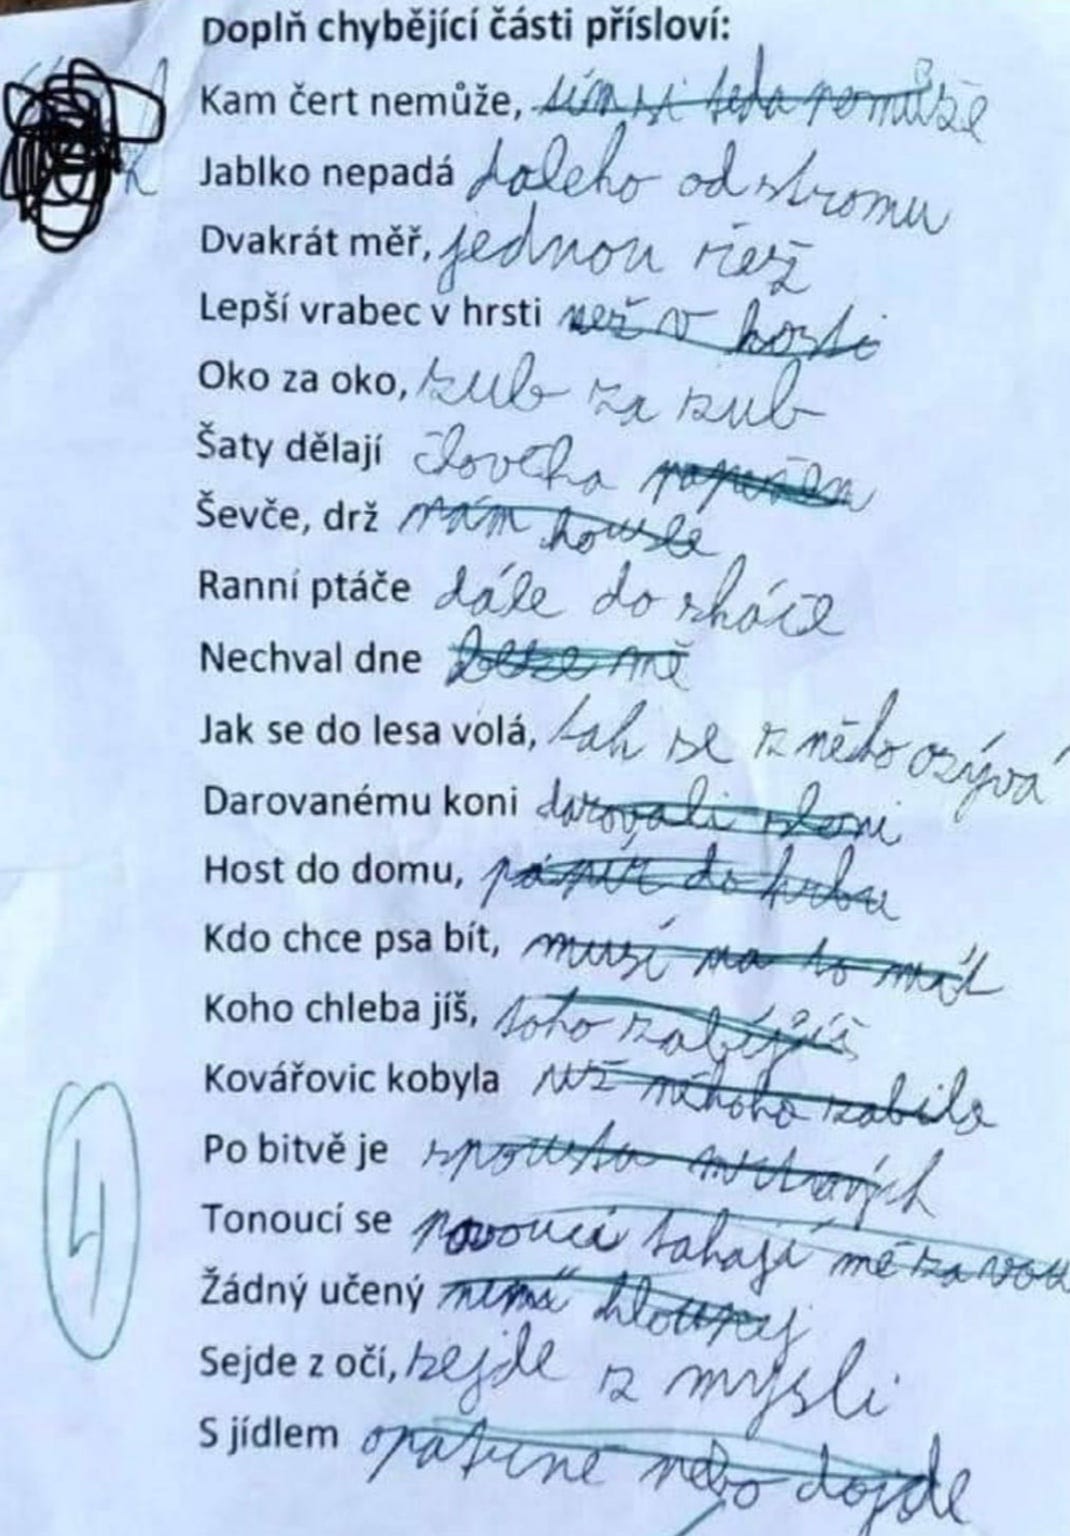 Doplň chybějící části přísloví:
Kam čert nemůže, tím si teda pomůže
Jablko nepadá daleko od stromu
Dvakrát měř, jednou řež
Lepší vrabec v hrsti než v kosti
Oko za oko, zub za zub
Šaty dělají člověka
Ševče, drž mám housle
Ranní ptáče dále do skáče
Nechval dne beze mě
Jak se do lesa volá, tak se z něho ozývá
Darovanému koni darovali sloni
Host do domu, do krbu
Kdo chce psa bít, musí na to mít
Koho chleba jíš, toho zabíjíš
Kovářovic kobyla už někoho zabila
Po bitvě je spousta mrtvých
Tonoucí se tahají mě za
Žádný učený není hloupej
Sejde z očí, sejde z mysli
S jídlem opatrně nebo dojde
4